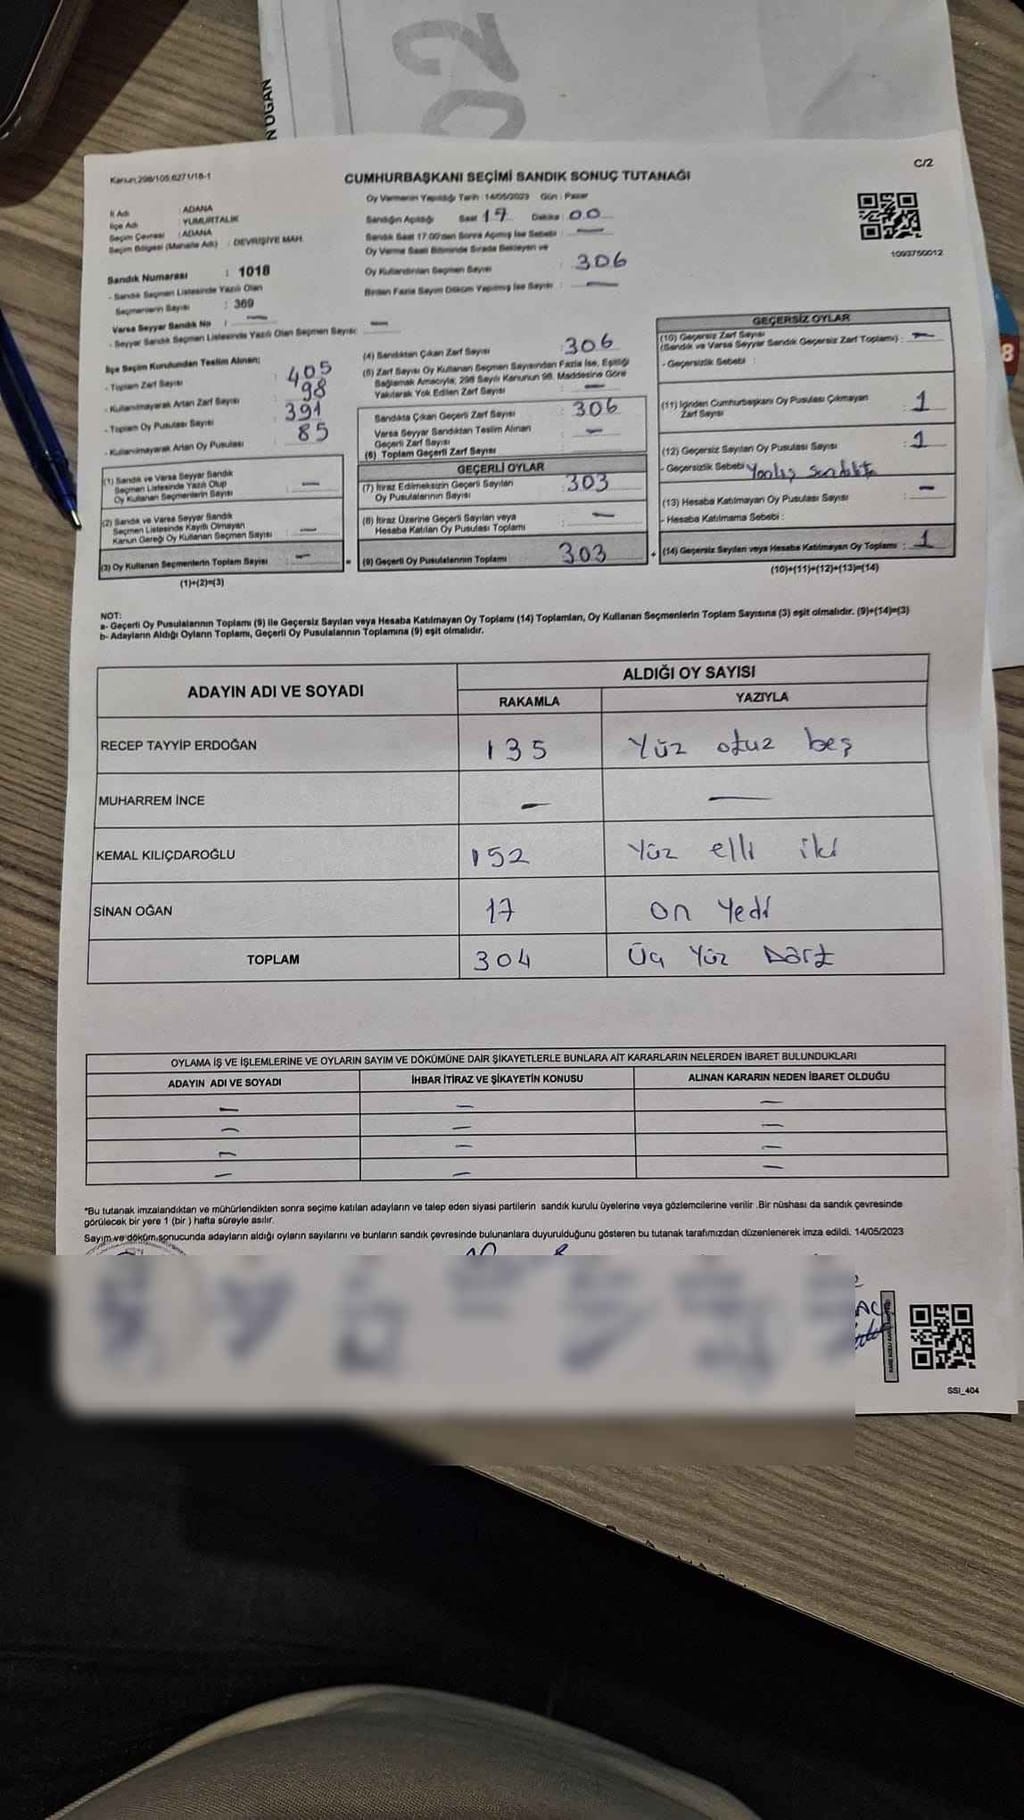 N OĞAN
C/2
Kanun:298/105,6271/18-1
CUMHURBAŞKANI SEÇİMİ SANDIK SONUÇ TUTANAĞI
Oy Vermenin Yapıldığı Tarih : 14/05/2023 Gün : Pazar
İl Adı : ADANA
İlçe Adı : YUMURTALIK
Seçim Çevresi : ADANA
Seçim Bölgesi (Mahalle Adı) : DEVRİŞİYE MAH.
Sandığın Açıldığı Saat 17 Dakika : 00
Sandık Saat 17:00'den Sonra Açılmış İse Sebebi : —
Oy Verme Saati Bitiminde Sırada Bekleyen ve
Oy Kullandırılan Seçmen Sayısı : 306
Birden Fazla Sayım Döküm Yapılmış İse Sayısı : —
1093750012
Sandık Numarası : 1018
- Sandık Seçmen Listesinde Yazılı Olan
Seçmenlerin Sayısı : 369
Varsa Seyyar Sandık No : —
- Seyyar Sandık Seçmen Listesinde Yazılı Olan Seçmen Sayısı: —
İlçe Seçim Kurulundan Teslim Alınan;
- Toplam Zarf Sayısı : 405
- Kullanılmayarak Artan Zarf Sayısı : 98
- Toplam Oy Pusulası Sayısı : 391
- Kullanılmayarak Artan Oy Pusulası : 85
(1) Sandık ve Varsa Seyyar Sandık
Seçmen Listesinde Yazılı Olup
Oy Kullanan Seçmenlerin Sayısı : —
(2) Sandık ve Varsa Seyyar Sandık
Seçmen Listesinde Kayıtlı Olmayan
Kanun Gereği Oy Kullanan Seçmen Sayısı : —
(3) Oy Kullanan Seçmenlerin Toplam Sayısı : —
(1)+(2)=(3)
(4) Sandıktan Çıkan Zarf Sayısı : 306
(5) Zarf Sayısı Oy Kullanan Seçmen Sayısından Fazla İse, Eşitliği
Sağlamak Amacıyla; 298 Sayılı Kanunun 98. Maddesine Göre
Yakılarak Yok Edilen Zarf Sayısı : —
Sandıkta Çıkan Geçerli Zarf Sayısı : 306
Varsa Seyyar Sandıktan Teslim Alınan
Geçerli Zarf Sayısı : —
(6) Toplam Geçerli Zarf Sayısı
GEÇERLİ OYLAR
(7) İtiraz Edilmeksizin Geçerli Sayılan
Oy Pusulalarının Sayısı : 303
(8) İtiraz Üzerine Geçerli Sayılan veya
Hesaba Katılan Oy Pusulası Toplamı : —
(9) Geçerli Oy Pusulalarının Toplamı : 303
GEÇERSİZ OYLAR
(10) Geçersiz Zarf Sayısı
(Sandık ve Varsa Seyyar Sandık Geçersiz Zarf Toplamı) : —
- Geçersizlik Sebebi :
(11) İçinden Cumhurbaşkanı Oy Pusulası Çıkmayan
Zarf Sayısı : 1
(12) Geçersiz Sayılan Oy Pusulası Sayısı : 1
- Geçersizlik Sebebi Yanlış Sandıkta
(13) Hesaba Katılmayan Oy Pusulası Sayısı : —
- Hesaba Katılmama Sebebi :
(14) Geçersiz Sayılan veya Hesaba Katılmayan Oy Toplamı : 1
(10)+(11)+(12)+(13)=(14)
NOT:
a- Geçerli Oy Pusulalarının Toplamı (9) ile Geçersiz Sayılan veya Hesaba Katılmayan Oy Toplamı (14) Toplamları, Oy Kullanan Seçmenlerin Toplam Sayısına (3) eşit olmalıdır. (9)+(14)=(3)
b- Adayların Aldığı Oyların Toplamı, Geçerli Oy Pusulalarının Toplamına (9) eşit olmalıdır.
ADAYIN ADI VE SOYADI
ALDIĞI OY SAYISI
RAKAMLA YAZIYLA
RECEP TAYYİP ERDOĞAN 135 Yüz otuz beş
MUHARREM İNCE — —
KEMAL KILIÇDAROĞLU 152 Yüz elli iki
SİNAN OĞAN 17 on Yedi
TOPLAM 304 Üç Yüz Dört
OYLAMA İŞ VE İŞLEMLERİNE VE OYLARIN SAYIM VE DÖKÜMÜNE DAİR ŞİKAYETLERLE BUNLARA AİT KARARLARIN NELERDEN İBARET BULUNDUKLARI
ADAYIN ADI VE SOYADI İHBAR İTİRAZ VE ŞİKAYETİN KONUSU ALINAN KARARIN NEDEN İBARET OLDUĞU
— — —
— — —
— — —
— — —
*Bu tutanak imzalandıktan ve mühürlendikten sonra seçime katılan adayların ve talep eden siyasi partilerin sandık kurulu üyelerine veya gözlemcilerine verilir .Bir nüshası da sandık çevresinde
görülecek bir yere 1 (bir ) hafta süreyle asılır.
Sayım ve döküm sonucunda adayların aldığı oyların sayılarını ve bunların sandık çevresinde bulunanlara duyurulduğunu gösteren bu tutanak tarafımızdan düzenlenerek imza edildi. 14/05/2023
SSI_404